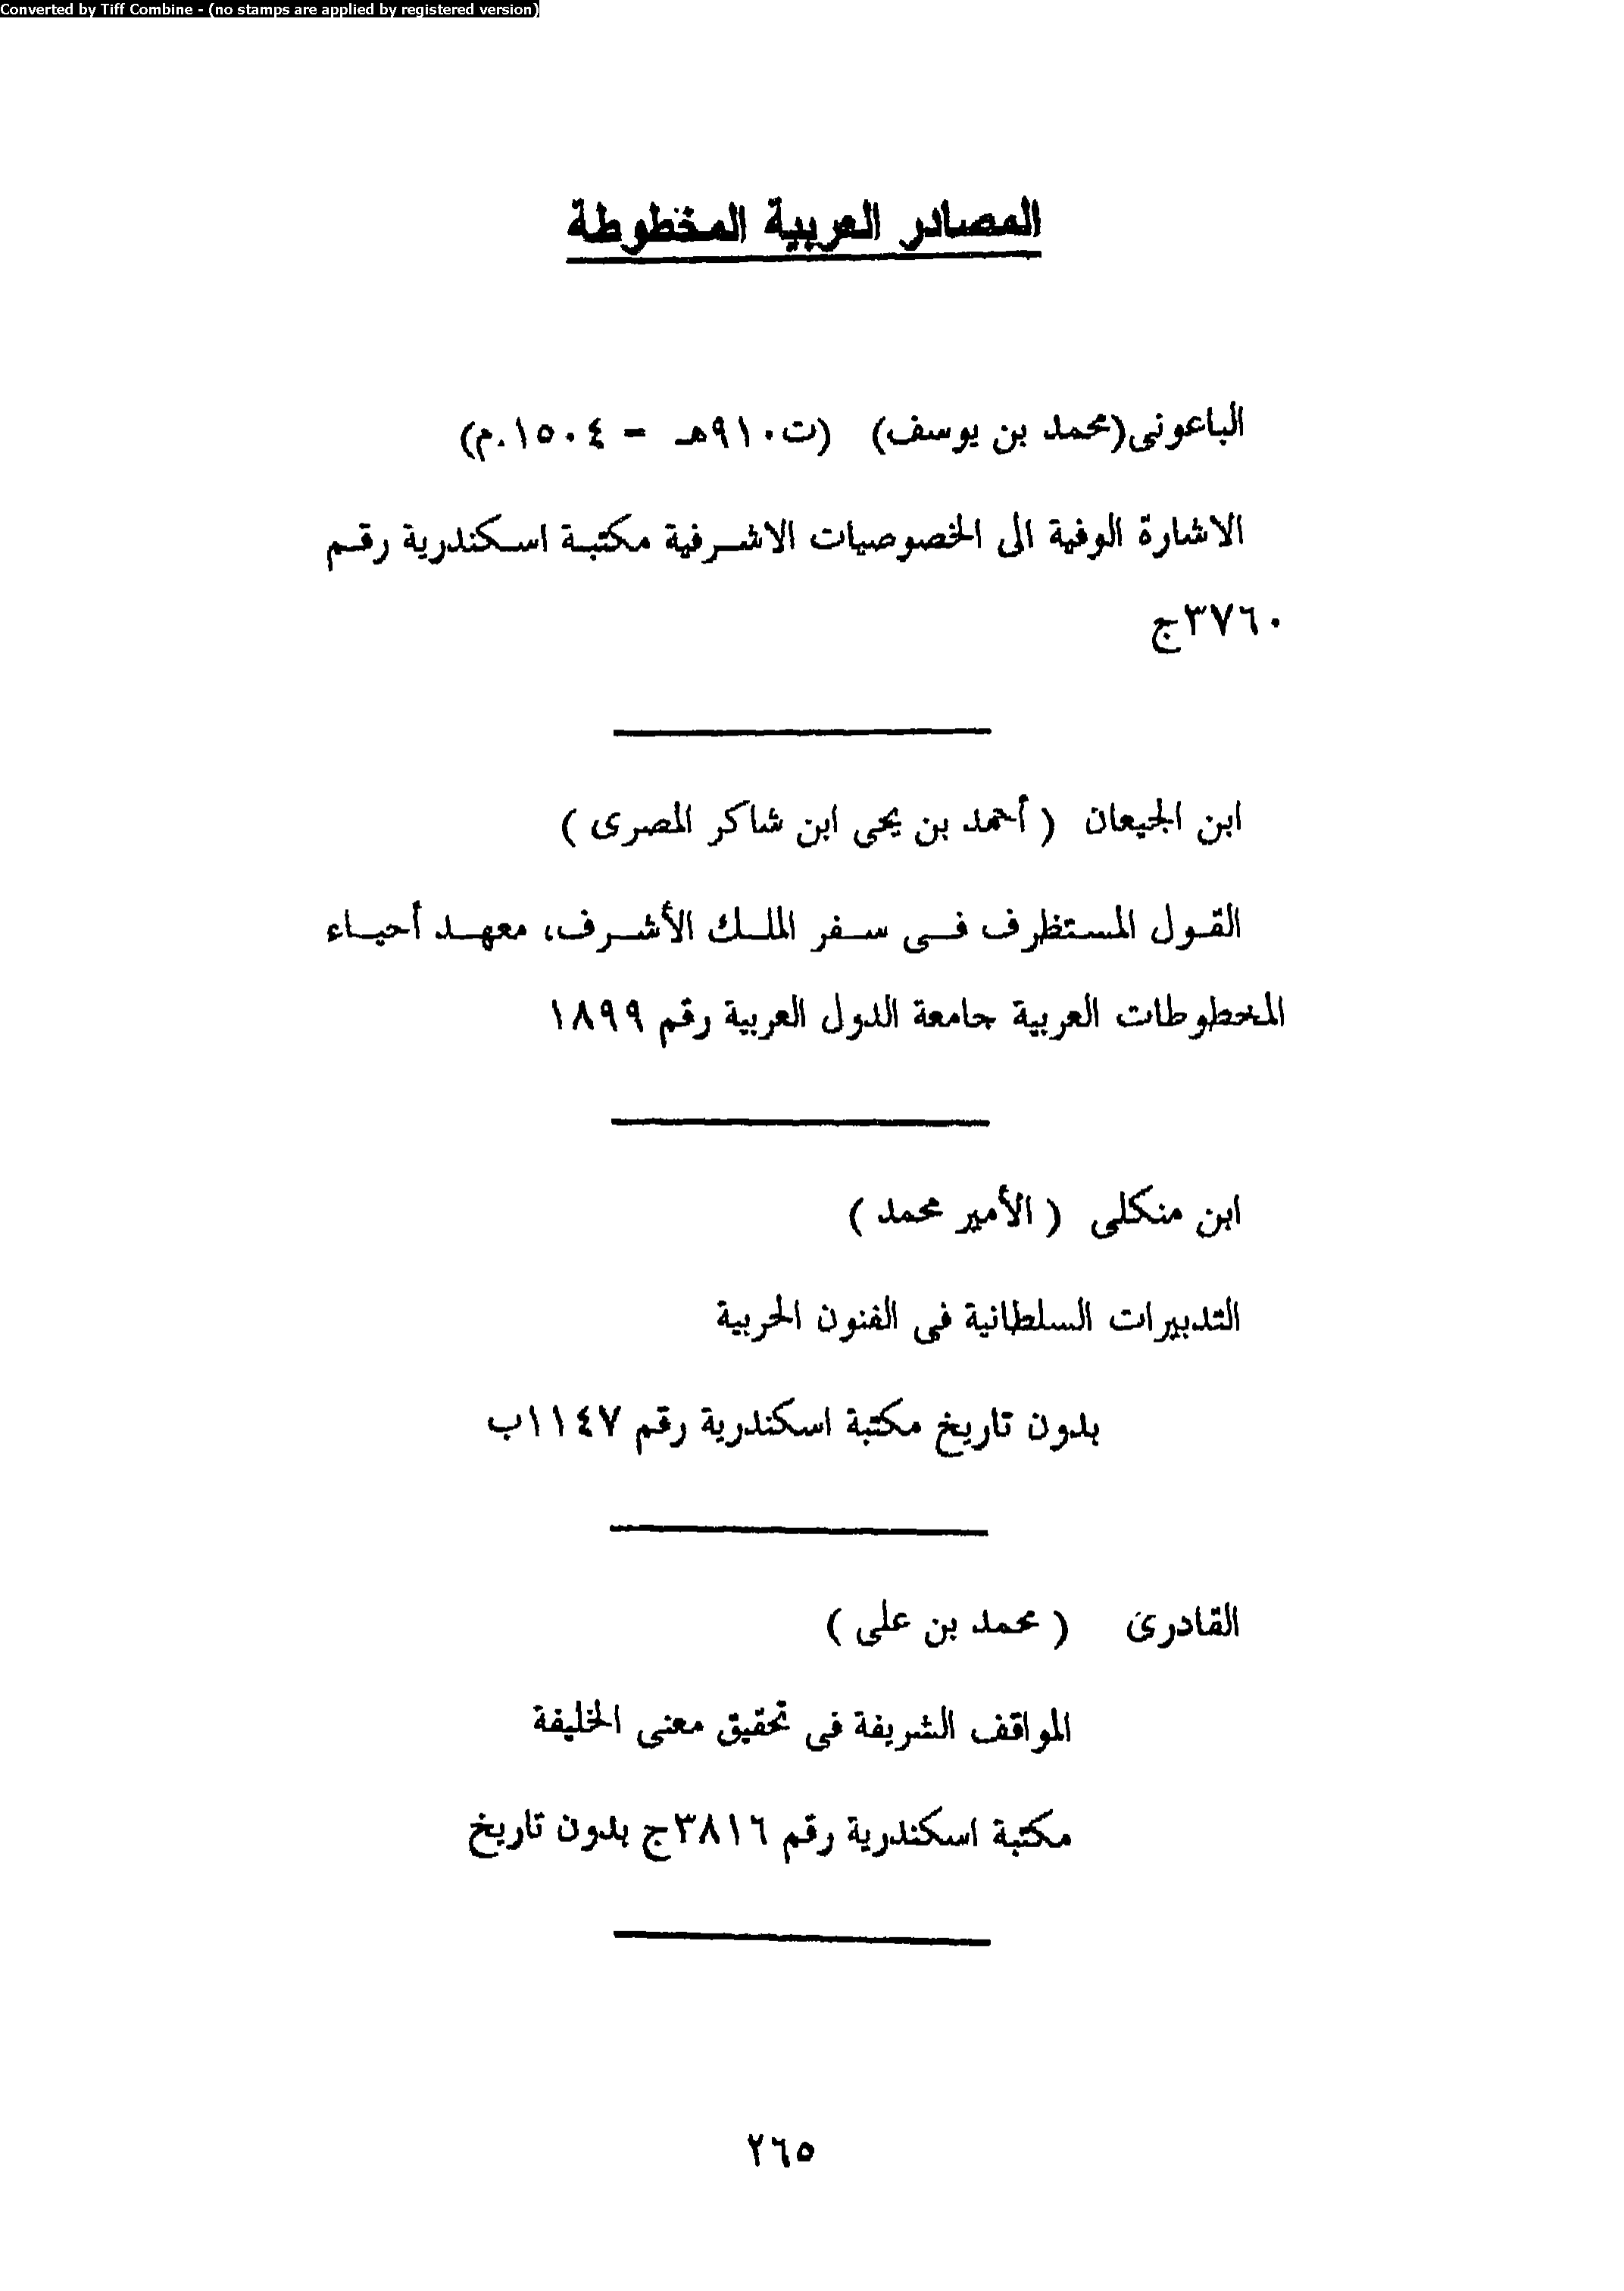 Converted by Tiff Combine - (no stamps are applied by registered version)
المصادر العربية المخطوطة
الباعونى(محمد بن يوسف) (ت٩١٠هـ = ١٥٠٤.م)
الاشارة الوفية الى الخصوصيات الاشرفية مكتبة اسكندرية رقم
٣٧٦٠ج
ابن الجيعان ( أحمد بن يحى ابن شاكر المصرى )
القول المستظرف فى سفر الملك الأشرف، معهد أحياء
المخطوطات العربية جامعة الدول العربية رقم ١٨٩٩
ابن منكلى ( الأمير محمد )
التدبيرات السلطانية فى الفنون الحربية
بدون تاريخ مكتبة اسكندرية رقم ١١٤٧ب
القادرى ( محمد بن على )
المواقف الشريفة فى تحقيق معنى الخليفة
مكتبة اسكندرية رقم ٣٨١٦ج بدون تاريخ
٢٦٥